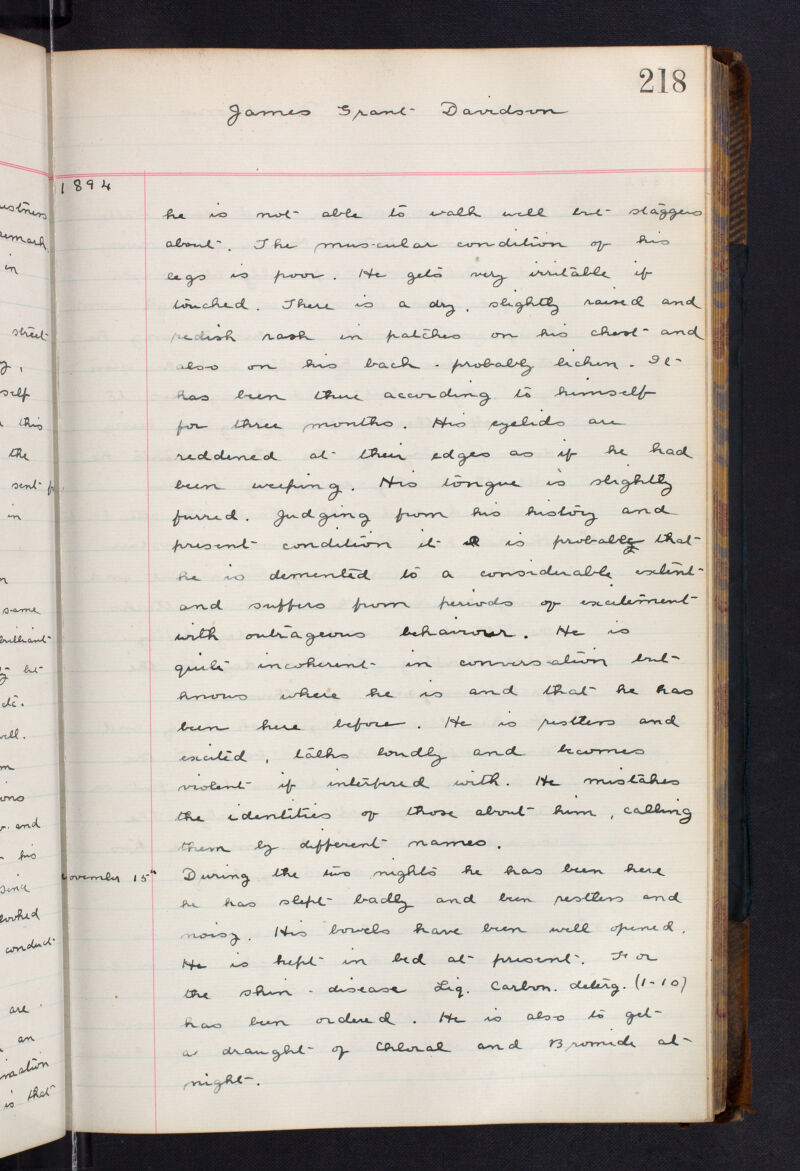 218
James Grant Davidson
1894
he is not able to walk well but staggers
about. The muscular condition of his
legs is poor. He gets very irritable if
touched. There is a dry, slightly raised and
redish rash in patches on his chest and
also on his back - probably lichen. It
has been there according to himself
for three months. His eyelids are
reddened at their edges as if he had
been weeping. His tongue is slightly
furred. Judging from his history and
present condition it is probable that
he is demented to a considerable extent
and suffers from periods of excitement
with outrageous behaviour. He is
quite incoherent in conversation but
knows where he is and that he has
been here before. He is restless and
excited, talks loudly and becomes
violent if interfered with. He mistakes
the identities of those about him, calling
them by different names.
November 15th During the two nights he has been here
he has slept badly and been restless and
noisy. His bowels have been well opened.
He is kept in bed at present. For
the skin-disease Liq. Carbon. deterg. (1-10)
has been ordered. He is also to get
a draught of Chloral and Bromide at
night.
remark
in
street
self
this
the
sent
in
same
brilliant
but
etc.
well.
and
his
looked
conduct
are
an
is that